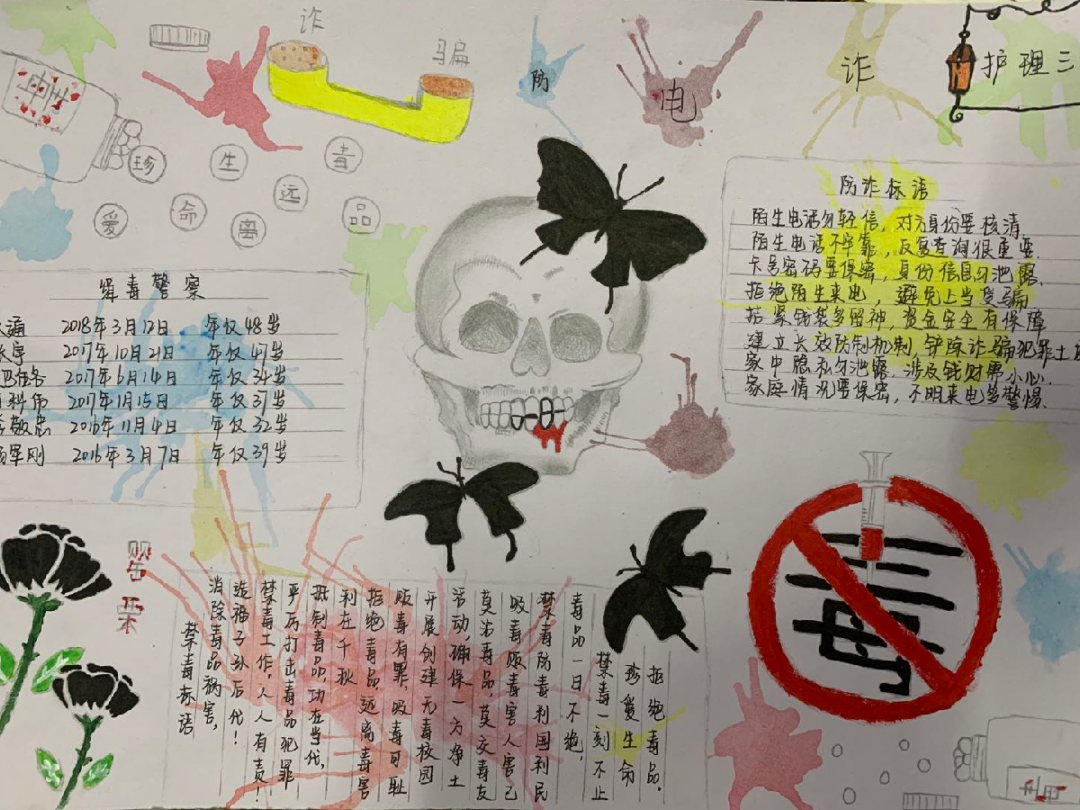 诈
骗
防
电
诈
护理三
珍
爱
生
命
远
离
毒
品
缉毒警察
2018年3月12日 年仅48岁
2017年10月21日 年仅47岁
2017年6月14日 年仅34岁
2017年1月15日 年仅37岁
2016年11月4日 年仅32岁
2016年3月7日 年仅39岁
防诈标语
陌生电话勿轻信，对方身份要核清
陌生电话不牢靠，反复查询很重要.
卡号密码要保密，身份信息勿泄露.
拒绝陌生来电，避免上当受骗
捂紧钱袋多留神，资金安全有保障
建立长效防制机制 铲除诈骗犯罪土
家中隐私勿泄露.涉及钱财事小心.
家庭情况要保密，不明来电多警惕.
罂
粟
毒
禁毒标语
消除毒品祸害，
造福子孙后代！
禁毒工作，人人有责！
严厉打击毒品犯罪
抵制毒品功在当代，
利在千秋
拒绝毒品远离毒害
贩毒有罪，吸毒可耻
开展创建无毒校园
活动，确保一方净土
莫沾毒品莫交毒友
吸毒贩毒害人害己
禁毒防毒利国利民
毒品一日不绝，
禁毒一刻不止
珍爱生命
拒绝毒品.